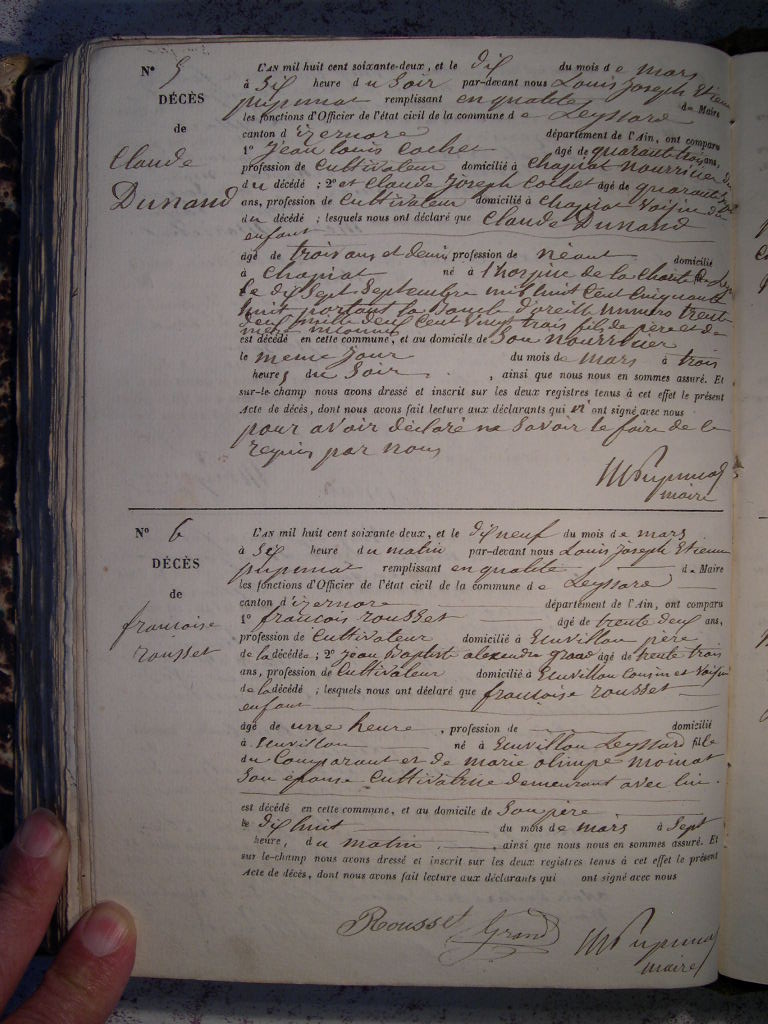 N° 5
DÉCÈS
de
Claude
Dunand
L'AN mil huit cent soixante-deux, et le dix du mois de mars
à Six heure du Soir par-devant nous Louis Joseph Etienne
remplissant en qualité de Maire
les fonctions d'Officier de l'état civil de la commune de Leyssard
canton d'izernore département de l'Ain, ont comparu
1° Jean Louis Cochet âgé de quarante trois ans,
profession de Cultivateur domicilié à Chapiat nourricier du
du décédé ; 2° et Claude Joseph Cochet âgé de quarante
ans, profession de Cultivateur domicilié à Chapiat Voisin du
du décédé ; lesquels nous ont déclaré que Claude Dunand
enfant
âgé de trois ans et demi profession de néant domicilié
à Chapiat né à l'hospice de la Charité de
le dix Sept Septembre mil huit Cent Cinquante
huit portant la Boucle d'oreille numero trente
deux mille deux Cent Vingt trois fils de père et de
mère inconnus
est décédé en cette commune, et au domicile de Son nourricier
le meme jour du mois de mars à trois
heures du Soir , ainsi que nous nous en sommes assuré. Et
sur-le-champ nous avons dressé et inscrit sur les deux registres tenus à cet effet le présent
Acte de décès, dont nous avons fait lecture aux déclarants qui n' ont signé avec nous
pour avoir déclaré ne Savoir le faire de ce
requis par nous
maire
N° 6
DÉCÈS
de
francoise
rousset
L'AN mil huit cent soixante-deux, et le dix neuf du mois de mars
à Six heure du matin par-devant nous Louis Joseph Etienne
remplissant en qualité de Maire
les fonctions d'Officier de l'état civil de la commune de Leyssard
canton d'izernore département de l'Ain, ont comparu
1° francois rousset âgé de trente deux ans,
profession de Cultivateur domicilié à Solomiat père
de la décédée ; 2° jean Baptiste alexandre grand âgé de trente trois
ans, profession de Cultivateur domicilié à Cousin et Voisin
de la décédé ; lesquels nous ont déclaré que françoise rousset
enfant
âgé de une heure , profession de domicilié
à né à Leyssard fille
du Comparant et de marie olimpe moinat
Son épouse Cultivatrice demeurant avec lui.
est décédé en cette commune, et au domicile de Son père
le dix huit du mois de mars à Sept
heure, du matin , ainsi que nous nous en sommes assuré. Et
sur le-champ nous avons dressé et inscrit sur les deux registres tenus à cet effet le présent
Acte de décès, dont nous avons fait lecture aux déclarants qui ont signé avec nous
Rousset Grand
maire